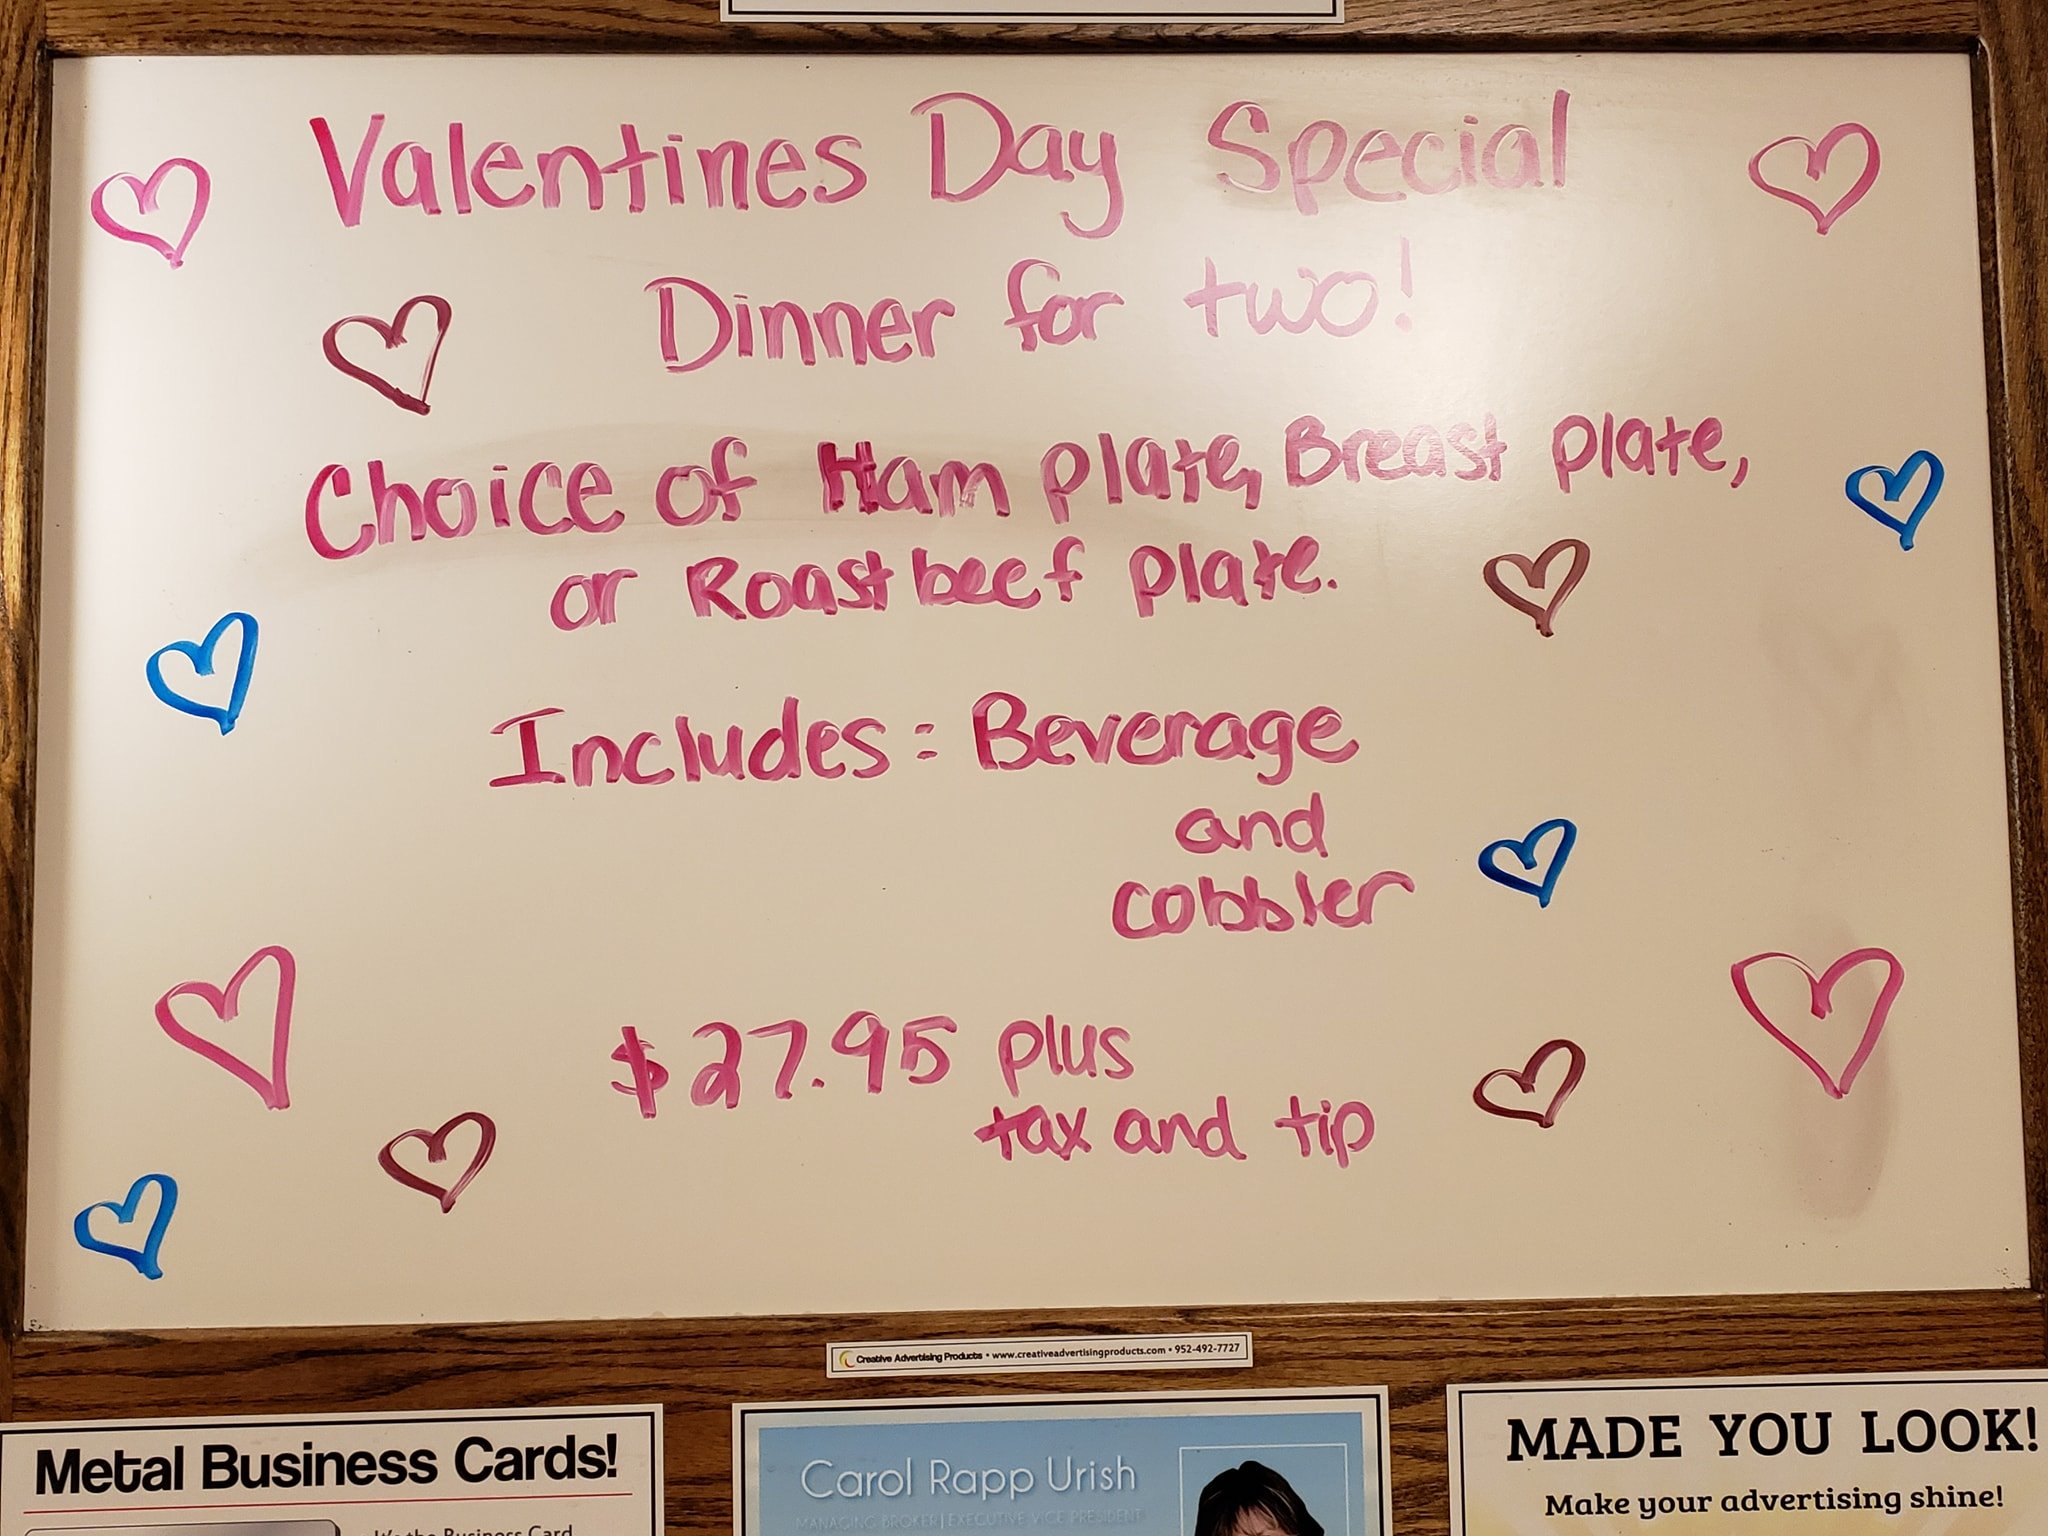 Valentines Day Special
Dinner for two!
Choice of Ham plate, Breast plate,
or Roast beef plate.
Includes: Beverage
and
cobbler
$27.95 plus
tax and tip
Creative Advertising Products • www.creativeadvertisingproducts.com • 952-492-7727
Metal Business Cards!
It's the Business Card
Carol Rapp Urish
MANAGING BROKER | EXECUTIVE VICE PRESIDENT
MADE YOU LOOK!
Make your advertising shine!